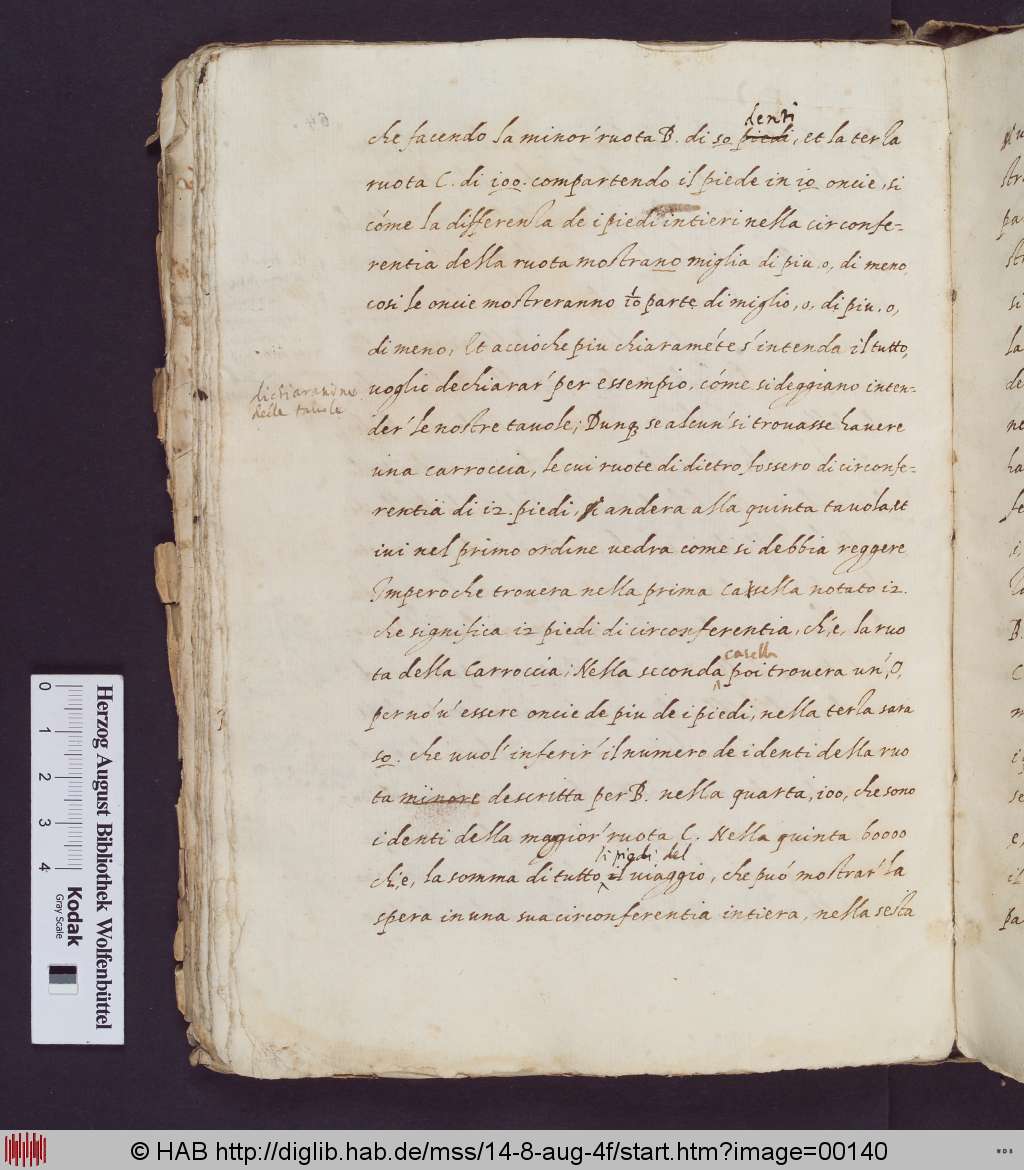 denti
che facendo la minor' ruota B. di 50 piedi, et la terza
ruota C. di 100. compartendo il piede in 10 oncie, si
cóme la differenza de i piedi intieri nella circonfe-
rentia della ruota mostrano miglia di piu. o, di meno,
cosi le oncie mostreranno 1/10 parte di miglio, o, di piu. o,
di meno, Et accioche piu chiaraméte s'intenda il tutto,
voglio dechiarar' per essempio, cóme si deggiano inten-
dichiaratione
delle tavole
der' le nostre tavole; Dunq; se alcun' si trovasse havere
una carroccia, le cui ruote di dietro fossero di circonfe-
rentia di 12. piedi, si andera alla quinta tavola, et
ivi nel primo ordine vedra come si debbia reggere
Imperoche trovera nella prima casella notato 12.
che significa 12 piedi di circonferentia, ch'e, la ruo
casella
ta della Carroccia; Nella seconda ^ poi trovera un', 0,
per nó v'essere oncie de piu de i piedi, nella terza sara
50. che vuol' inferir' il numero de i denti della ruo
ta minore descritta per B. nella quarta, 100, che sono
i denti della maggior' ruota C. Nella quinta 60000
li piedi del
ch'e, la somma di tutto ^ il viaggio, che puó mostrar' la
spera in una sua circonferentia intiera, nella sesta
0 1 2 3 4
Herzog August Bibliothek Wolfenbüttel
Kodak
Gray Scale
© HAB http://diglib.hab.de/mss/14-8-aug-4f/start.htm?image=00140